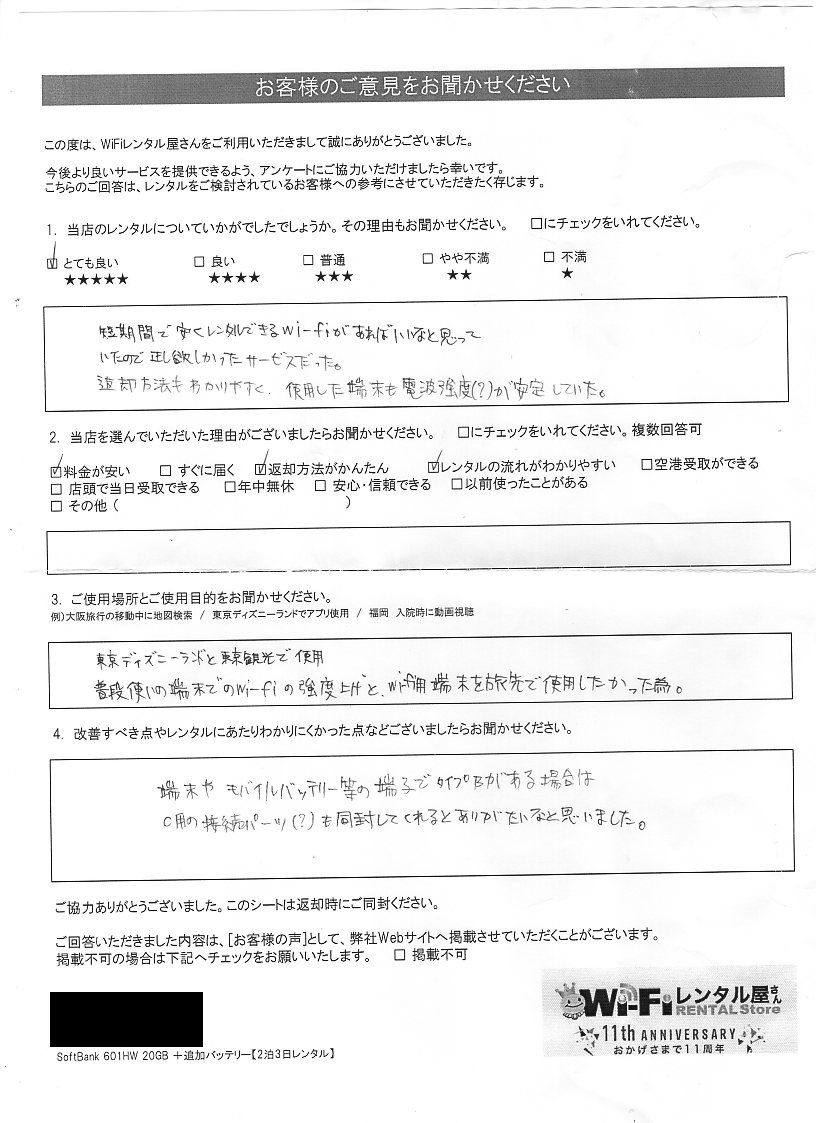 お客様のご意見をお聞かせください
この度は、WiFiレンタル屋さんをご利用いただきまして誠にありがとうございました。
今後より良いサービスを提供できるよう、アンケートにご協力いただけましたら幸いです。
こちらのご回答は、レンタルをご検討されているお客様への参考にさせていただきたく存じます。
1. 当店のレンタルについていかがでしたでしょうか。その理由もお聞かせください。 □にチェックをいれてください。
☑ とても良い □ 良い □ 普通 □ やや不満 □ 不満
★★★★★ ★★★★ ★★★ ★★ ★
短期間で安くレンタルできるwi-fiがあればいいなと思って
いたので正し欲しかったサービスだった。
返却方法もわかりやすく、使用した端末も電波強度(?)が安定していた。
2. 当店を選んでいただいた理由がございましたらお聞かせください。 □にチェックをいれてください。複数回答可
☑料金が安い □ すぐに届く ☑返却方法がかんたん ☑レンタルの流れがわかりやすい □空港受取ができる
□ 店頭で当日受取できる □年中無休 □ 安心・信頼できる □以前使ったことがある
□ その他 ( )
3. ご使用場所とご使用目的をお聞かせください。
例)大阪旅行の移動中に地図検索 / 東京ディズニーランドでアプリ使用 / 福岡 入院時に動画視聴
東京ディズニーランドと東京観光で使用
普段使いの端末でのwi-fiの強度上げと、wi-fi用端末を旅先で使用したかった為。
4. 改善すべき点やレンタルにあたりわかりにくかった点などございましたらお聞かせください。
端末やモバイルバッテリー等の端子でタイプBがある場合は
C用の接続パーツ(?)も同封してくれるとありがたいなと思いました。
ご協力ありがとうございました。このシートは返却時にご同封ください。
ご回答いただきました内容は、[お客様の声]として、弊社Webサイトへ掲載させていただくことがございます。
掲載不可の場合は下記へチェックをお願いいたします。 □ 掲載不可
Wi-Fiレンタル屋さん
RENTAL Store
11th ANNIVERSARY
おかげさまで11周年
SoftBank 601HW 20GB +追加バッテリー【2泊3日レンタル】